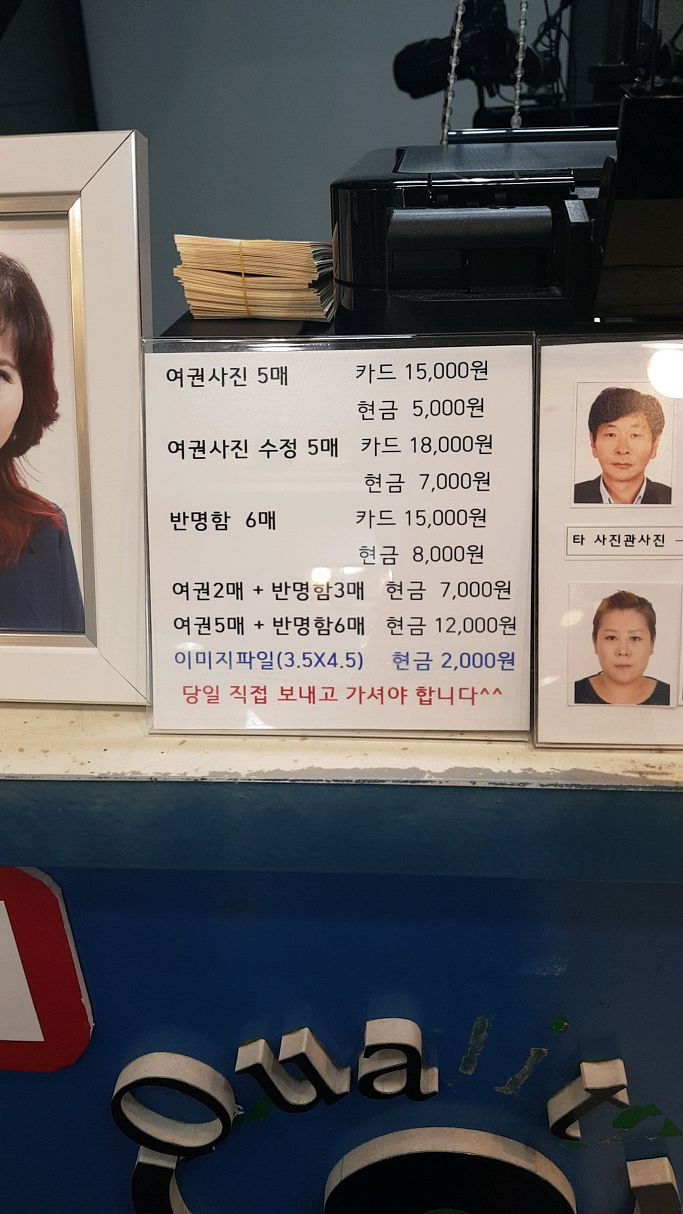 여권사진 5매 카드 15,000원
현금 5,000원
여권사진 수정 5매 카드 18,000원
현금 7,000원
반명함 6매 카드 15,000원
현금 8,000원
여권2매 + 반명함3매 현금 7,000원
여권5매 + 반명함6매 현금 12,000원
이미지파일(3.5X4.5) 현금 2,000원
당일 직접 보내고 가셔야 합니다^^
타 사진관사진